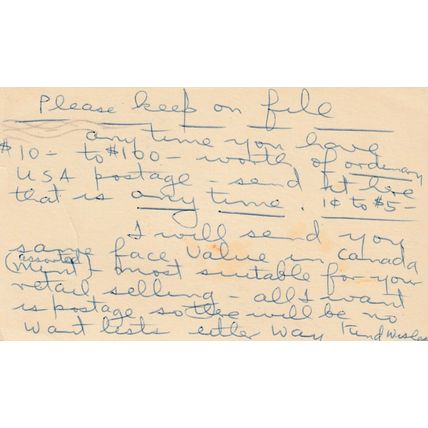 Please keep on file
any time you have
$10- to $100- worth of ordenary
USA postage - send it here
that is any time. 1¢ to $5-
I will send you
same face value in Canada
(assorted mint) - most suitable for your
retail selling - all I want
is postage so there will be no
want lists either way Kind Wishes